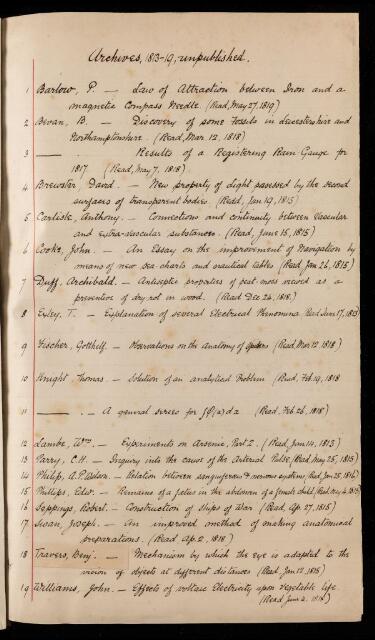 Archives, 1813-19, unpublished.
1 Barlow, P. — Law of Attraction between Iron and a
magnetic Compass Needle. (Read, May 27, 1819)
2 Bevan, B. — Discovery of some Fossils in Leicestershire and
Northamptonshire. (Read, Mar. 12, 1818)
3 —— . Results of a Registering Rain Gauge for
1817 (Read, May 7, 1818).
4 Brewster, David. — New property of Light possessed by the second
surfaces of transparent bodies. (Read, Jan 19, 1815)
5 Carlisle, Anthony. — Connections and continuity between Vascular
and extra-vascular substances. (Read, June 15, 1815)
6 Cooke, John. — An Essay on the improvement of Navigation by
means of new sea-charts and nautical tables (Read Jan 26, 1815)
7 Duff, Archibald. — Antiseptic properties of peat-moss viewed as a
preventive of dry rot in wood. (Read Dec 24, 1818.)
8 Exley, T. — Explanation of several Electrical Phenomena Read June 17, 1813)
9 Fischer, Gotthelf. — Observations on the Anatomy of (Read Mar 12 1818)
10 Knight, Thomas. — Solution of an analytical Problem (Read, Feb. 19, 1818
11 —— . — A general series for (Read, Feb. 26, 1818)
12 Lambe, Wm. — Experiments on Arsenic, Part 2. (Read, Jan 14, 1813)
13 Parry, C.H. — Inquiry into the cause of the Arterial Pulse, (Read, May 25, 1815)
14 Philip, A.P. Wilson. — Relation between sanguiferous & nervous systems, (Read, Jan 25, 1816)
15 Phillips, Edw. — Remains of a fetus in the abdomen of a female child (Read, May 4, 1815)
16 Seppings, Robert. — Construction of Ships of War (Read, Ap. 27, 1815)
17 Swan, Joseph. — An improved method of making anatomical
preparations. (Read Ap. 2, 1818)
18 Travers, Benj. — Mechanism by which the eye is adapted to the
vision of objects at different distances (Read Jan 12, 1815)
19 Williams, John. — Effects of voltaic Electricity upon Vegetable life.
(Read June 2,